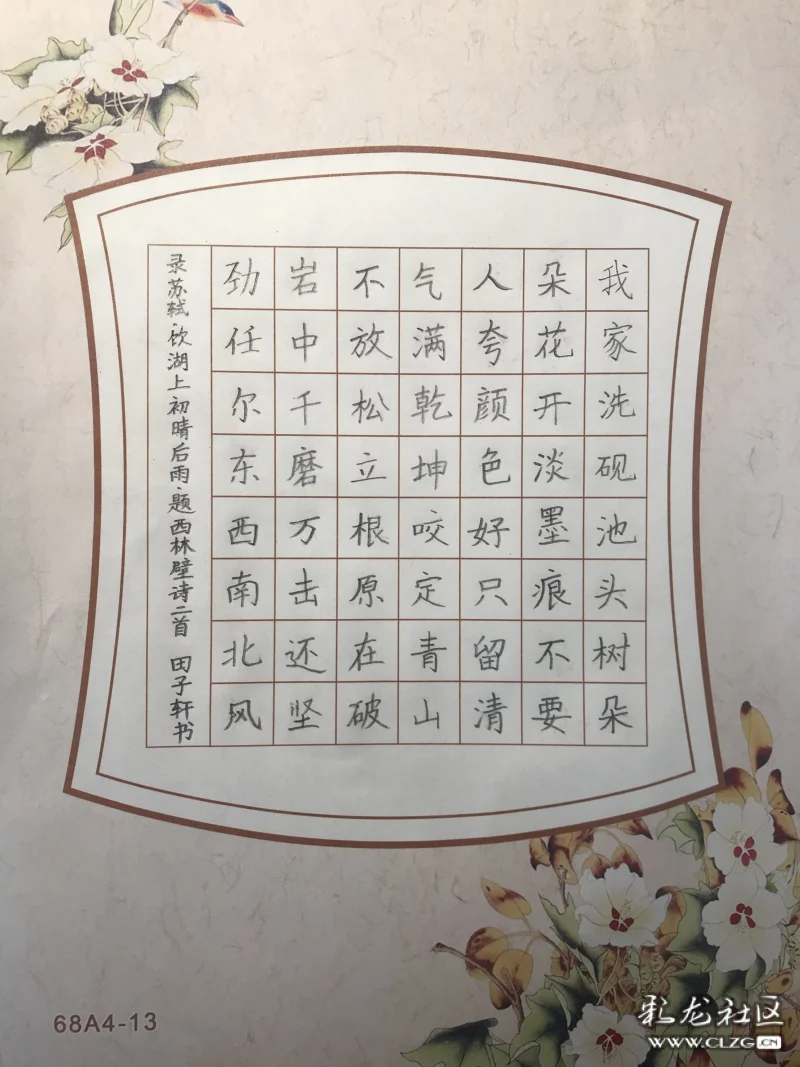 我家洗砚池头树朵
朵花开淡墨痕不要
人夸颜色好只留清
气满乾坤咬定青山
不放松立根原在破
岩中千磨万击还坚
劲任尔东西南北风
录苏轼·饮湖上初晴后雨·题西林壁诗二首 田子轩书
68A4-13
彩龙社区
WWW.CLZG.CN